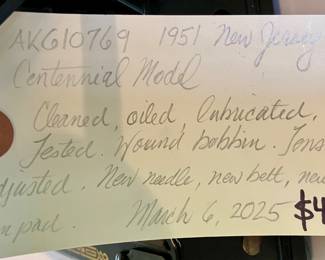 AK610769 1951 New Jersey
Centennial Model
Cleaned, oiled, lubricated,
Tested. Wound bobbin. Tens
djusted. New needle, new belt, new
n pad. March 6, 2025 $4